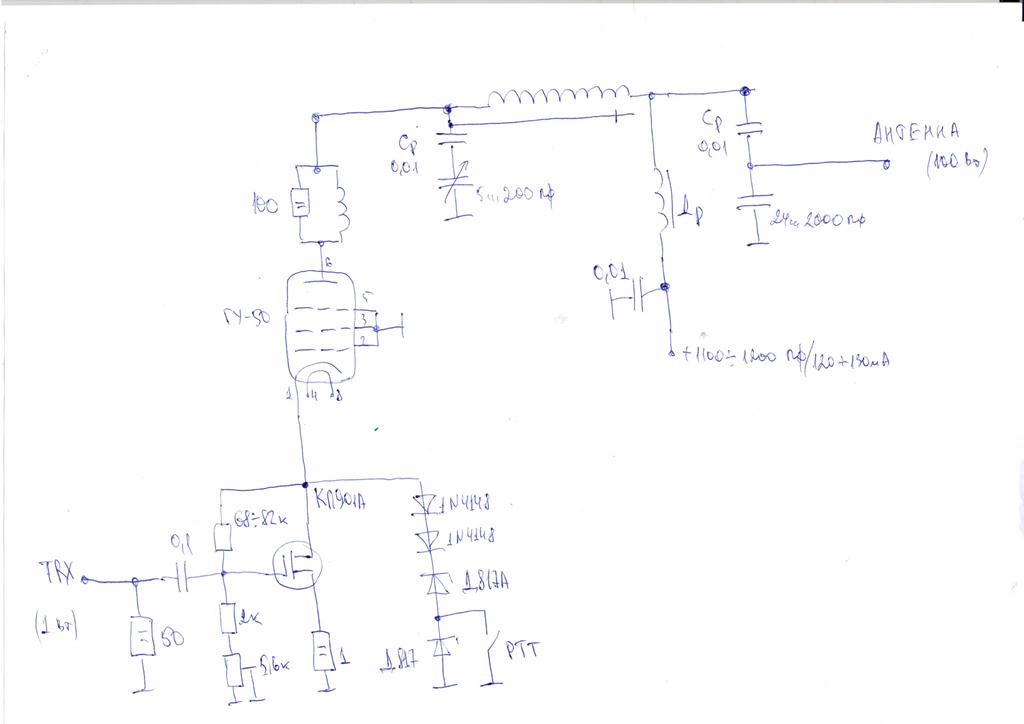 Cр
0,01
5...200 пф
Cр
0,01
АНТЕННА
(100 Вт)
24...2000 пф
100
Др
0,01
6
ГУ-50
5
3
2
1 4 8
+1100÷1200 пф/120÷130мА
КП901А
68÷82к
1N4148
1N4148
0,1
TRX
Д817А
(1 Вт)
50
2к
5,6к
1
Д817
PTT